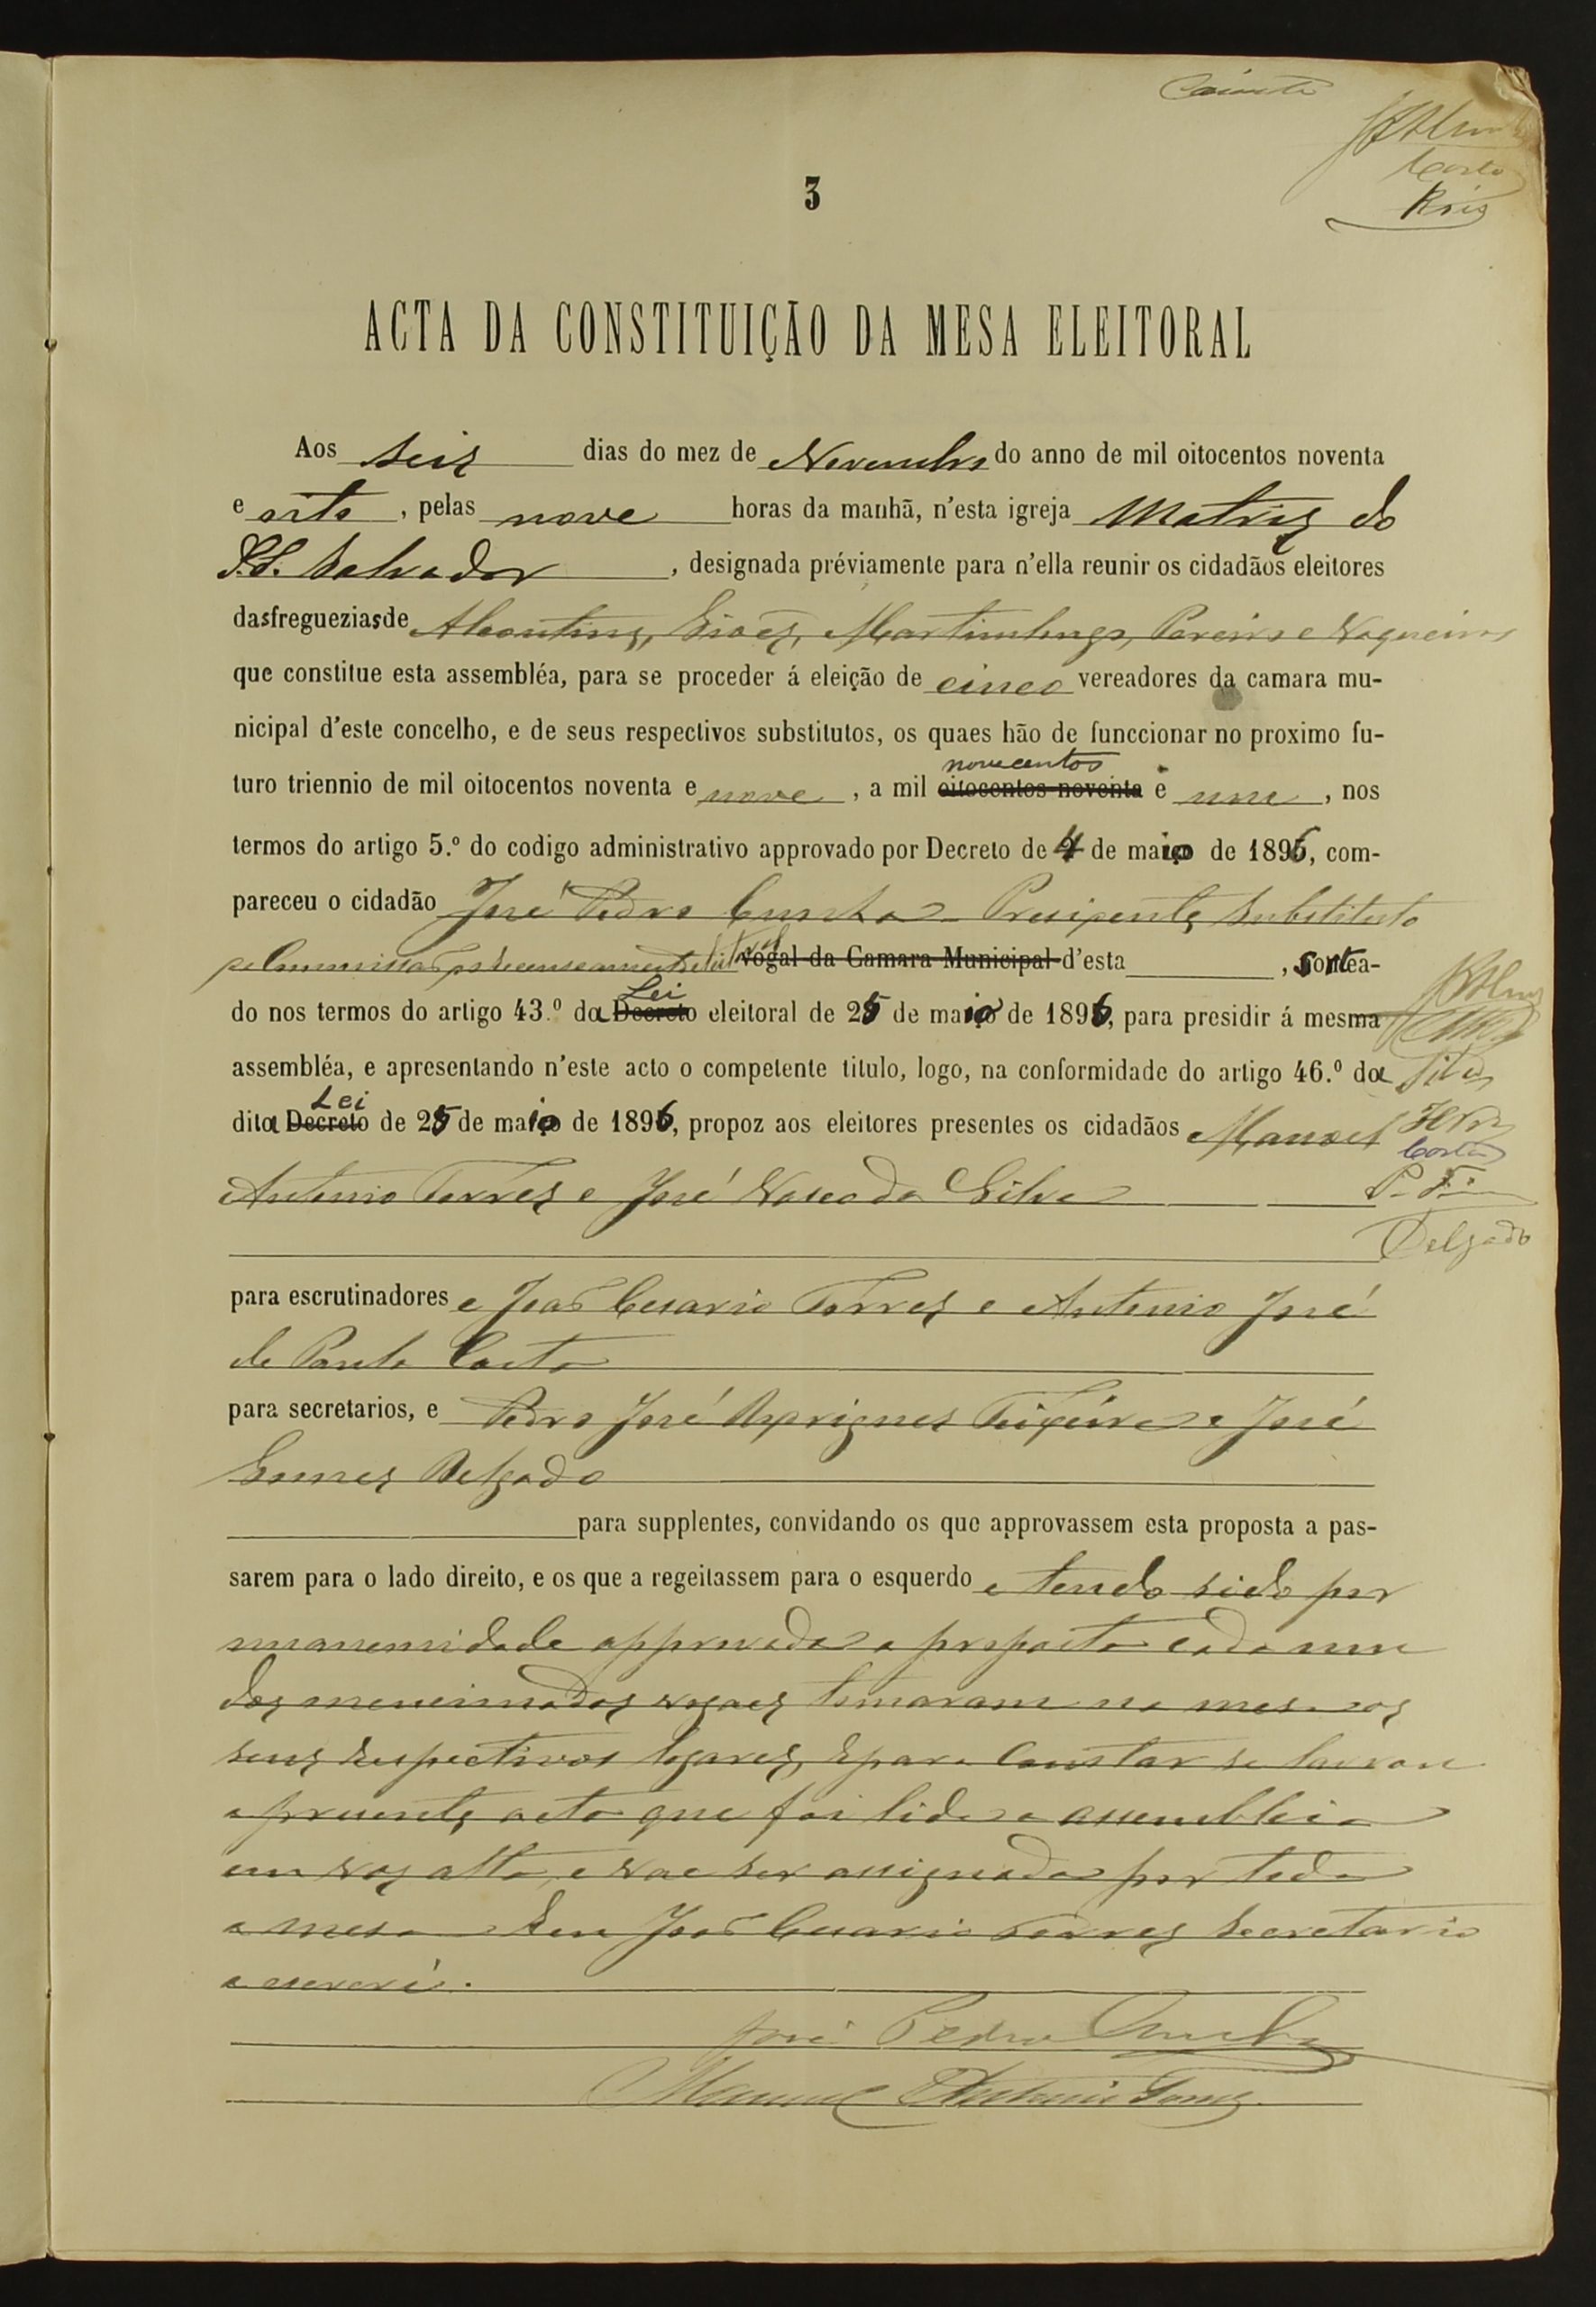 Costa
Reis
3
ACTA DA CONSTITUIÇÃO DA MESA ELEITORAL
Aos seis dias do mez de Novembro do anno de mil oitocentos noventa
e oito, pelas nove horas da manhã, n'esta igreja Matriz do
S.S. Salvador, designada préviamente para n'ella reunir os cidadãos eleitores
das freguezias de Alcoutim, Giões, Martimlongo, Pereiro e Vaqueiros
que constitue esta assembléa, para se proceder á eleição de cinco vereadores da camara mu-
nicipal d'este concelho, e de seus respectivos substitutos, os quaes hão de funccionar no proximo fu-
novecentos
turo triennio de mil oitocentos noventa e nove, a mil oitocentos noventa e um, nos
termos do artigo 5.º do codigo administrativo approvado por Decreto de 4 de maio de 1896, com-
pareceu o cidadão José Pedro Cunha Presidente Substituto
vogal da Camara Municipal d'esta , sortea-
Lei
do nos termos do artigo 43.º da Decreto eleitoral de 25 de maio de 1896, para presidir á mesma
assembléa, e apresentando n'este acto o competente titulo, logo, na conformidade do artigo 46.º da
Silva
Lei
dita Decreto de 25 de maio de 1896, propoz aos eleitores presentes os cidadãos Manoel
Costa
Antonio Torres e José Vasco da Silva
P. T.
Delgado
para escrutinadores e João Cesario Torres e Antonio José
de Paula Costa
para secretarios, e Pedro José Rodrigues Teixeira e José
Gomes Delgado
para supplentes, convidando os que approvassem esta proposta a pas-
sarem para o lado direito, e os que a regeitassem para o esquerdo e tendo sido por
unanemidade approvada a proposta cada um
dos mencionados vogaes tomaram na mesa os
seus respectivos logares, e para constar se lavrou
a presente acta que foi lida a assembleia
em voz alta, e vae ser assignada por toda
a mesa Eu João Cesario Torres Secretario
a escrevi.
José Pedro Cunha
Manuel Antonio Torres